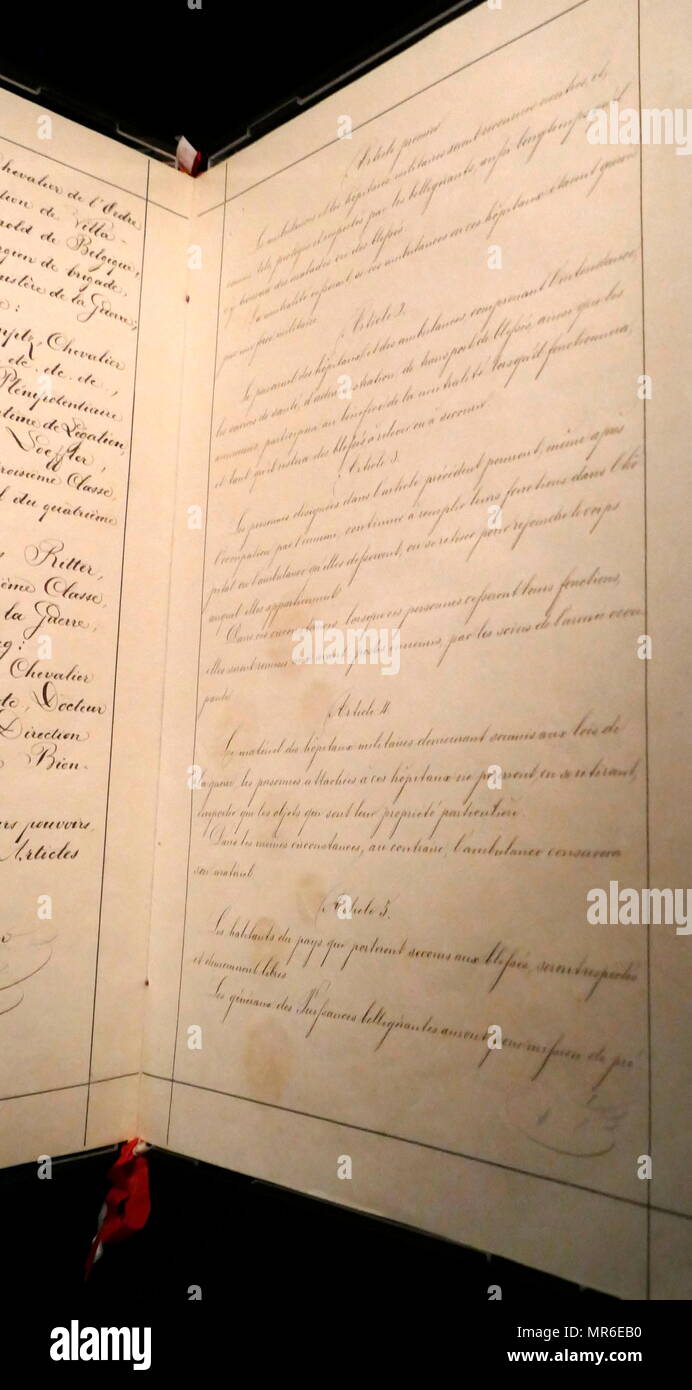 Chevalier de l'Ordre
tion de Villa-
pold de Belgique,
de brigade,
nistère de la Guerre,
:
Chevalier
etc. etc. etc.,
Plénipotentiaire
de Légation,
Loeffler,
roisième Classe
du quatrième
Ritter,
ième Classe,
la Guerre,
:
Chevalier
Docteur
Direction
Bien-
pouvoirs,
Articles
Article premier
Les ambulances et les hôpitaux militaires seront reconnus neutres, et,
comme tels, protégés et respectés par les belligérants, aussi longtemps qu'il
s'y trouvera des malades ou des blessés.
La neutralité cesserait si ces ambulances ou ces hôpitaux étaient gardés
par une force militaire.
Article 2.
Le personnel des hôpitaux et des ambulances, comprenant l'intendance,
les services de santé, d'administration, de transport de blessés, ainsi que les
aumôniers, participera au bénéfice de la neutralité lorsqu'il fonctionnera,
et tant qu'il restera des blessés à relever ou à secourir.
Article 3.
Les personnes désignées dans l'article précédent pourront, même après
l'occupation par l'ennemi, continuer à remplir leurs fonctions dans l'hô-
pital ou l'ambulance qu'elles desservent, ou se retirer pour rejoindre le corps
auquel elles appartiennent.
Dans ces circonstances, lorsque ces personnes cesseront leurs fonctions,
elles seront remises aux avant-postes ennemis, par les soins de l'armée occu-
pante.
Article 4
Le matériel des hôpitaux militaires demeurant soumis aux lois de
la guerre, les personnes attachées à ces hôpitaux ne pourront, en se retirant,
emporter que les objets qui sont leur propriété particulière.
Dans les mêmes circonstances, au contraire, l'ambulance conservera
son matériel.
Article 5.
Les habitants du pays qui porteront secours aux blessés, seront respectés
et demeureront libres.
Les généraux des Puissances belligérantes auront pour mission de pré-
a alamy stock photo
alamy
MR6EB0
www.alamy.com